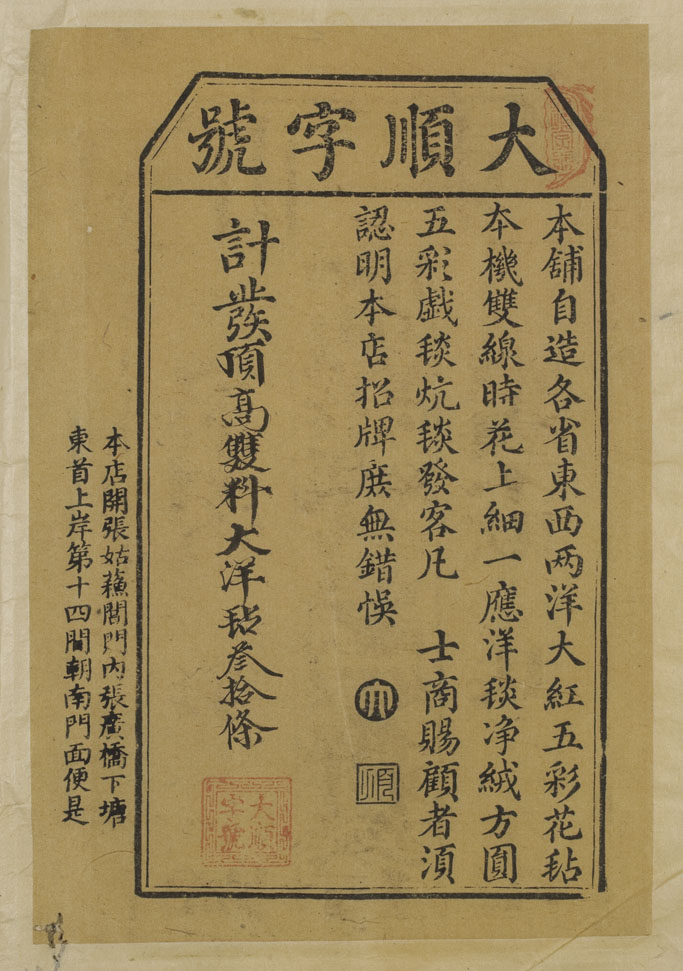 大順字號
本舖自造各省東西两洋大紅五彩花毡
本機雙線時花上細一應洋毯净絨方圓
五彩戯毯炕毯發客凡 士商賜顧者須
認明本店招牌庶無錯悞 大 順
計發頂高雙料大洋毡叁拾條
大順字號
本店開張姑蘓閶門内張廣橋下塘
東首上岸第十四間朝南門面便是